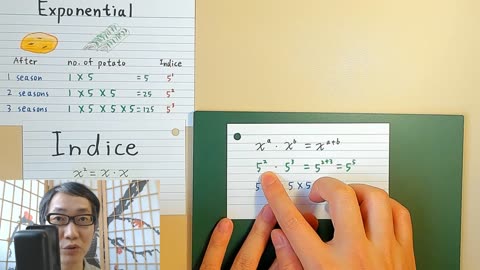 Exponential
After no. of potato Indice
1 season 1 X 5 = 5 5¹
2 seasons 1 X 5 X 5 = 25 5²
3 seasons 1 X 5 X 5 X 5 = 125 5³
Indice
x² = x · x
xᵃ · xᵇ = xᵃ⁺ᵇ
5² · 5³ = 5²⁺³ = 5⁵
5 5 X 5